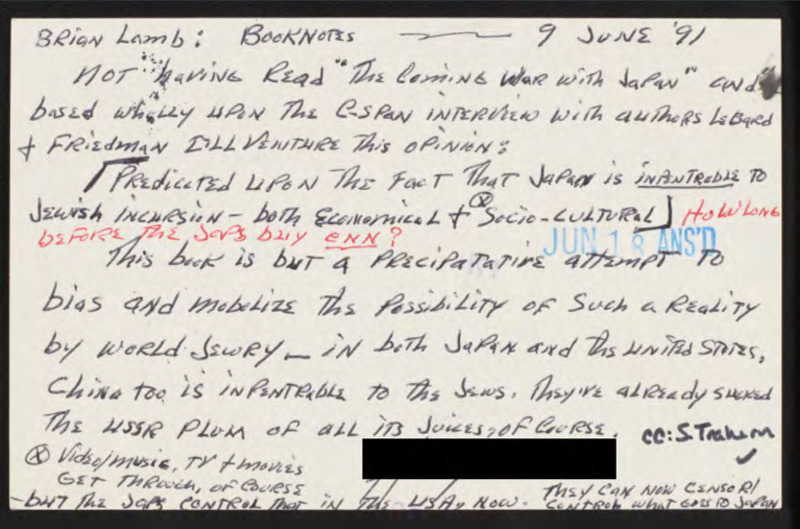 BRIAN Lamb: BOOKNOTES — 9 JUNE '91
NOT having READ "The Coming WAR with JAPAN" and
based wholly upon The C-SPAN INTERVIEW with authors LeBard
+ FRIEDMAN I'LL VENTURE This OPINION:
[PREDICATED UPON The FACT That JAPAN is INPENTRABLE TO
JEWISH INCURSION – both ECONOMICAL + ⓧ SOCIO-CULTURAL] HOW LONG
BEFORE THE JAPS BUY CNN?
JUN 18 ANS'D
This book is but a PRECIPATATIVE attempt TO
bias and mobilize the Possibility of Such a Reality
by WORLD JEWRY — IN both JAPAN and The UNITED STATES,
China too is INPENTRABLE to the JEWS. They've alREADY SUCKED
The USSR PLUM OF ALL ITS JUICES, OF COURSE. CC: S. Trahern
ⓧ Video/music, TV + movies
GET THROUGH, OF COURSE
– but THE JAPS CONTROL That IN The USA, NOW. THEY CAN NOW CENSOR/
CONTROL WHAT GOES TO JAPAN